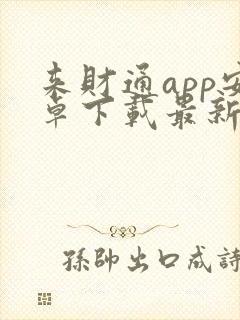 来財通app安
卓下載最新
孫帥出口成詩